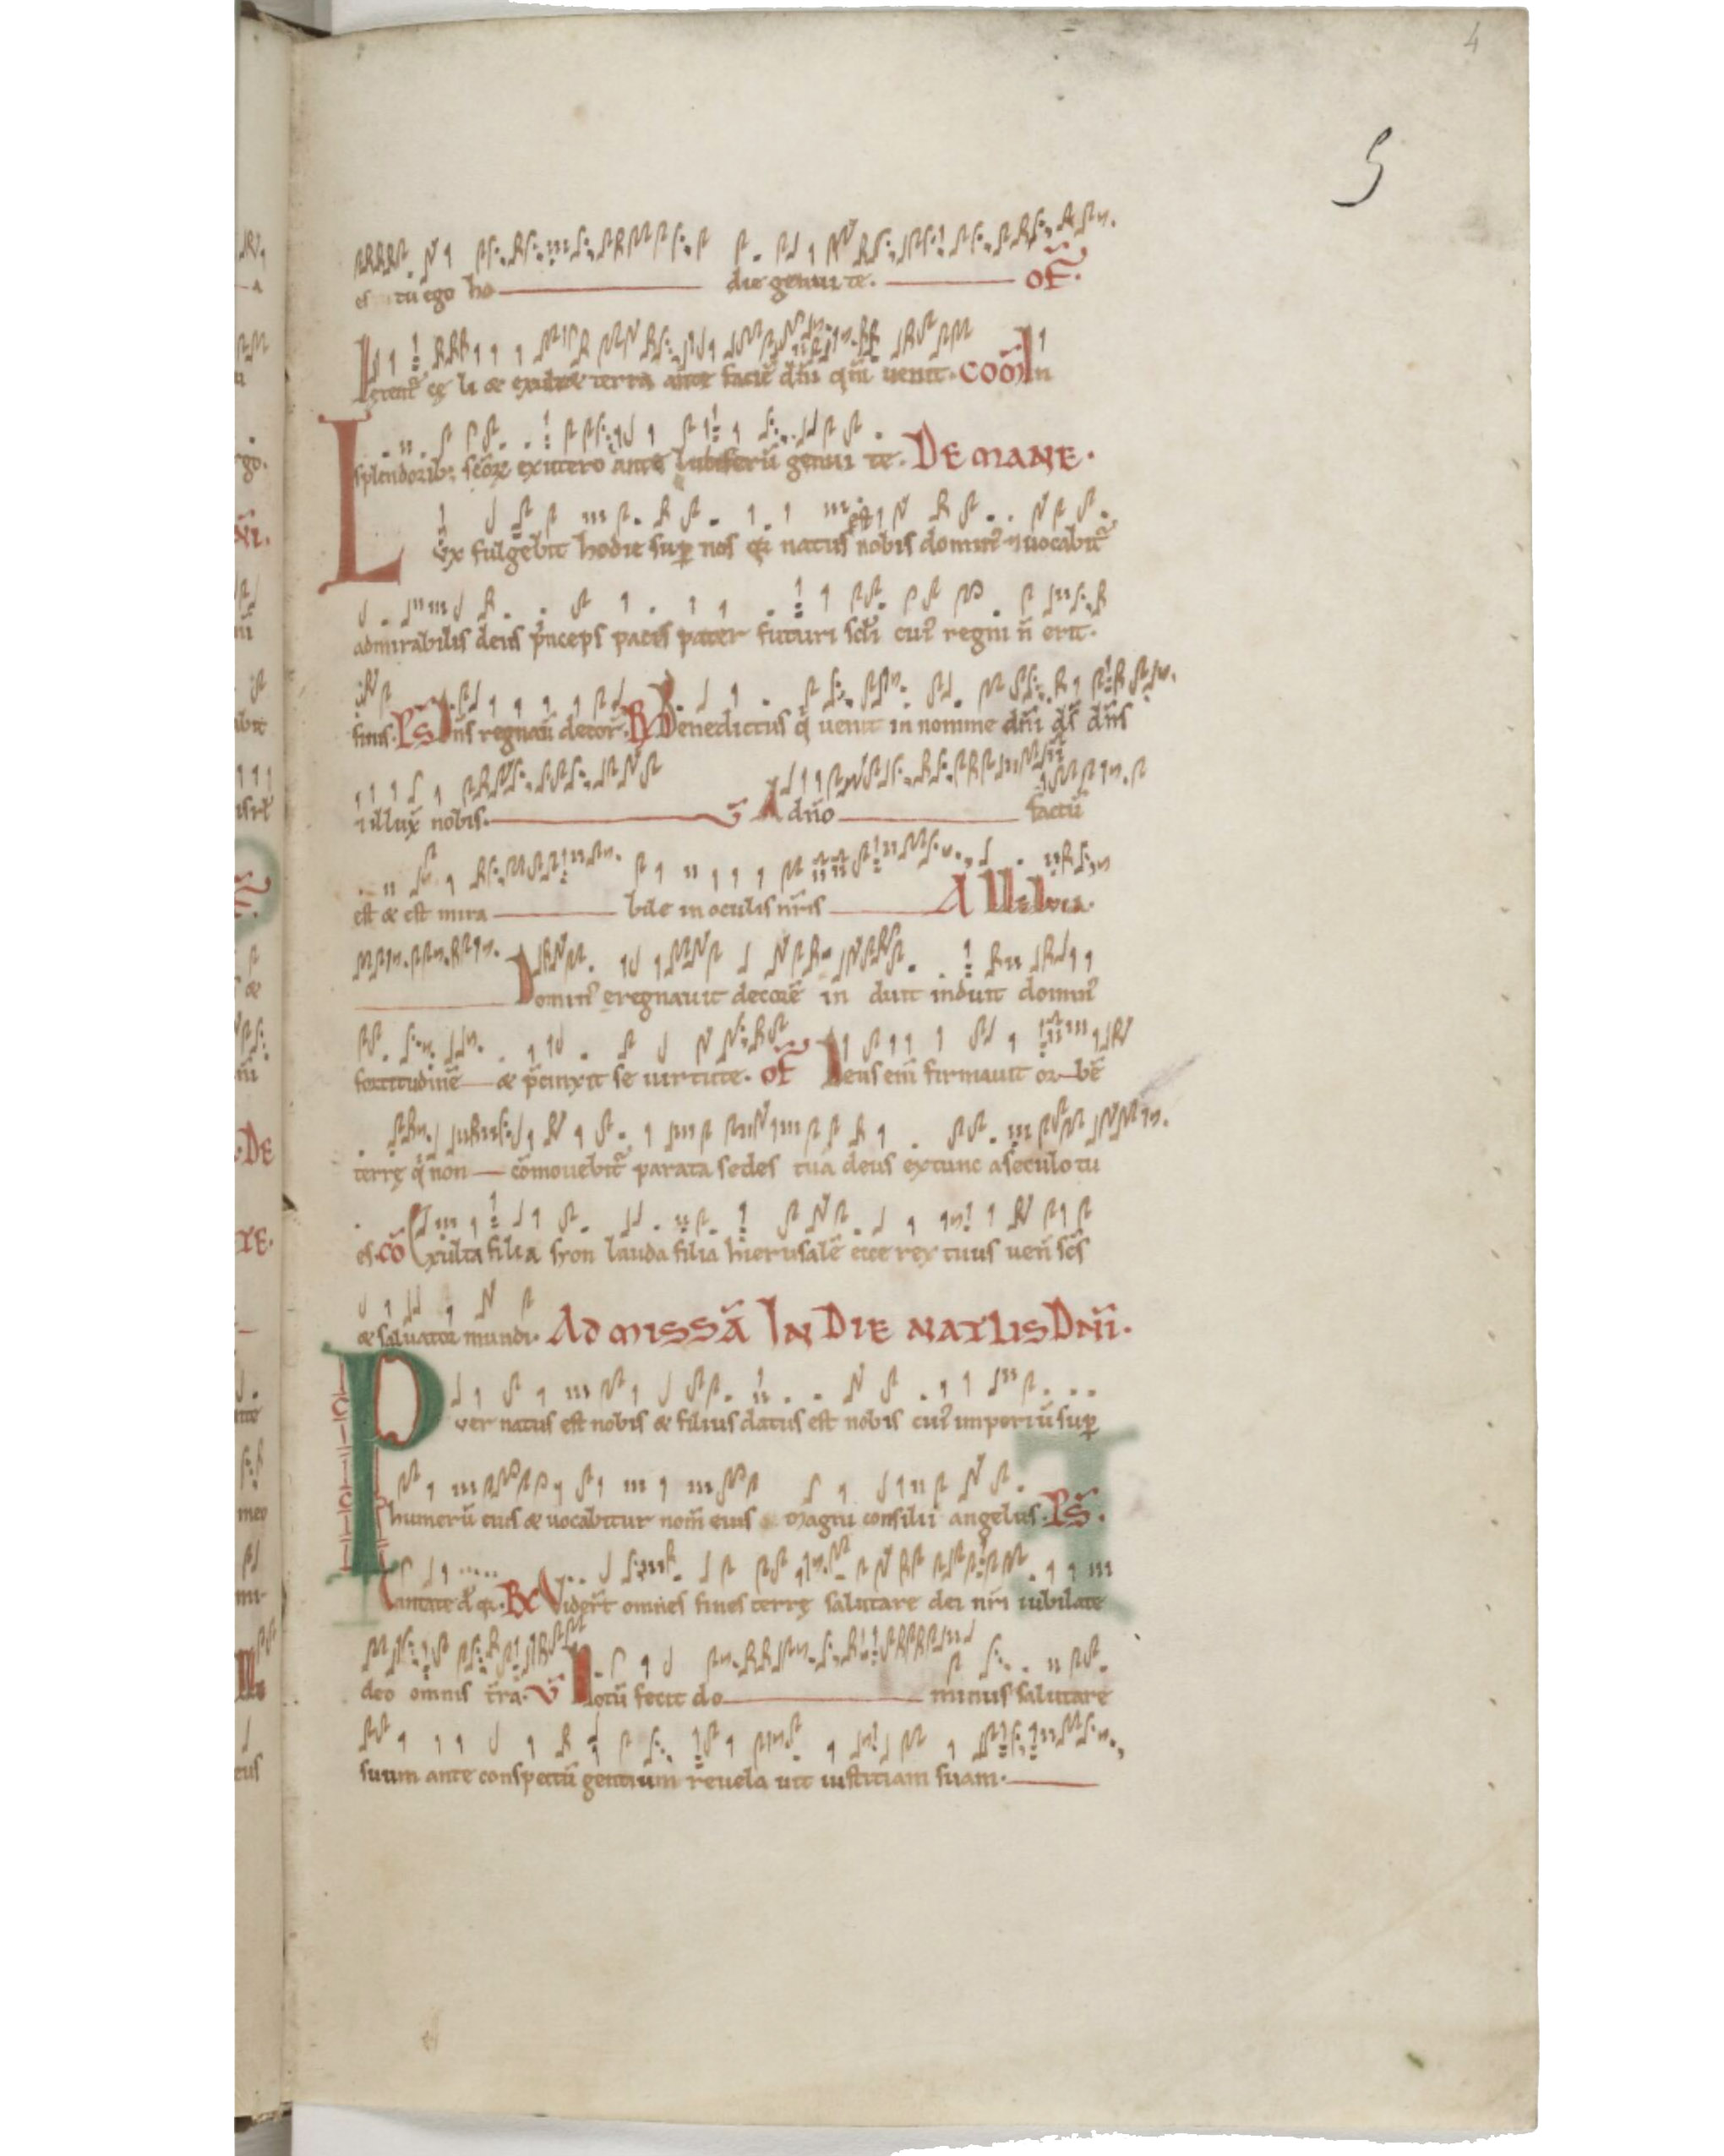 4
5
es tu ego ho die genui te. oF̃.
Lętent᷑ cę li & exultet terra ante faciē dn̄i qm̄ uenit. COM̄ In
splendorib; scōꝝ ex utero ante luciferū genui te. DE MANE.
Lux fulgebit hodie sup̱ nos qi natus nobis domin᷒ ⁊ uocabit᷑
admirabilis deus p̄nceps pacis pater futuri scl̄i cui᷒ regni n̄ erit.
finis. PS Dn̄s regnau̅ decor̄. R Benedictus q̇ uenit in nomine dn̄i ds̄ dn̄s
⁊ illux̄ nobis. V̄ A dn̄o factū
est & est mira bile in oculis nr̄is Alleluia.
Domin᷒ regnauit decorē in duit induit domin᷒
fortitudinē & p̄cinxit se uirtute. oF̄ Deus em̄ firmauit or bē
terrę q̇ non cōmouebit᷑ parata sedes tua deus ex tunc a seculo tu
es. CŌ Exulta filia syon lauda filia hierusalē ecce rex tuus uen̄ scs̄
& saluator mundi. AD MISSĀ IN DIE NATLIS DN̄I.
Puer natus est nobis & filius datus est nobis cui᷒ imperiū sup̱
humerū eius & uocabitur nom̄ eius magni consilii angelus. PS̄.
Cantate d̄ q̄. R Vider̄t omnes fines terrę salutare dei nr̄i iubilate
deo omnis t̄ra. V̄ Notū fecit do minus salutare
suum ante conspectū gentium reuela uit iustitiam suam.